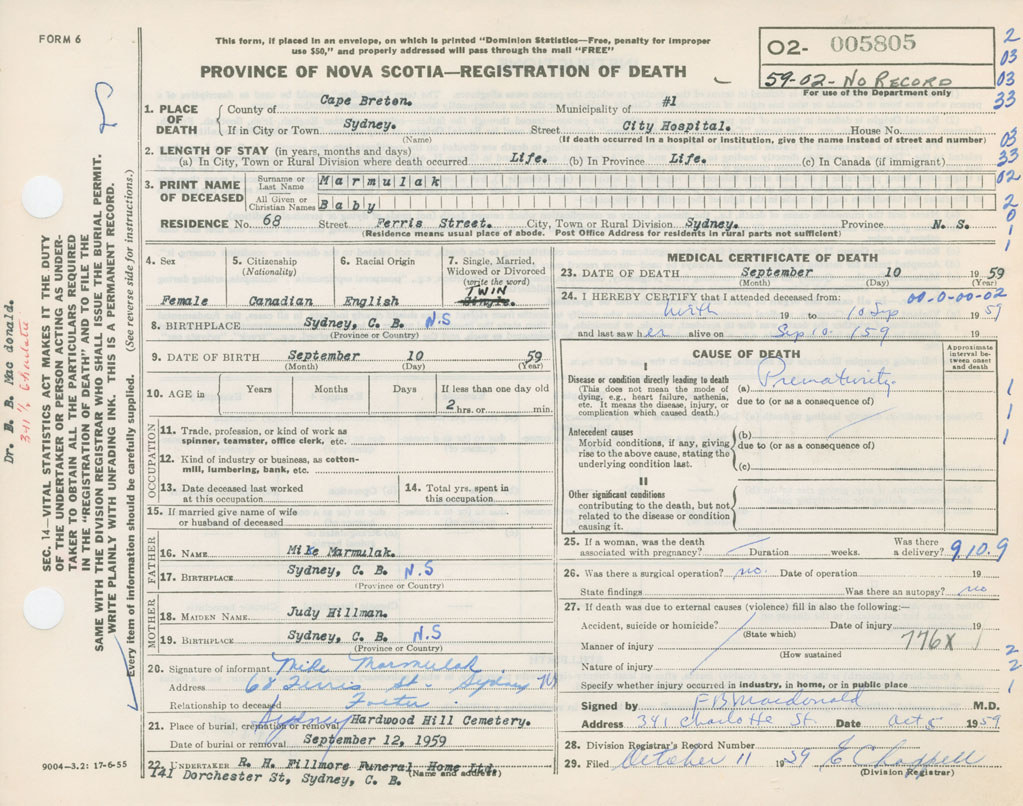 FORM 6
This form, if placed in an envelope, on which is printed "Dominion Statistics—Free, penalty for improper
use $50," and properly addressed will pass through the mail "FREE"
PROVINCE OF NOVA SCOTIA—REGISTRATION OF DEATH
O2- 005805
59-02-NO RECORD
For use of the Department only
2
03
03
33
03
33
02
2
0
1
1
1. PLACE OF DEATH
County of Cape Breton. Municipality of #1
If in City or Town Sydney. Street City Hospital. House No.
(Name) (If death occurred in a hospital or institution, give the name instead of street and number)
2. LENGTH OF STAY (in years, months and days)
(a) In City, Town or Rural Division where death occurred Life. (b) In Province Life. (c) In Canada (if immigrant)
3. PRINT NAME OF DECEASED
Surname or Last Name Marmulak
All Given or Christian Names Baby
RESIDENCE No. 68 Street Ferris Street. City, Town or Rural Division Sydney. Province N. S.
(Residence means usual place of abode. Post Office Address for residents in rural parts not sufficient)
4. Sex
Female
5. Citizenship
(Nationality)
Canadian
6. Racial Origin
English
7. Single, Married,
Widowed or Divorced
(write the word)
TWIN
Single.
8. BIRTHPLACE Sydney, C. B. N.S
(Province or Country)
9. DATE OF BIRTH September 10 1959
(Month) (Day) (Year)
10. AGE in Years Months Days If less than one day old
2 hrs. or min.
OCCUPATION
11. Trade, profession, or kind of work as
spinner, teamster, office clerk, etc.
12. Kind of industry or business, as cotton-
mill, lumbering, bank, etc.
13. Date deceased last worked
at this occupation
14. Total yrs. spent in
this occupation
15. If married give name of wife
or husband of deceased
FATHER
16. NAME Mike Marmulak.
17. BIRTHPLACE Sydney, C. B. N.S
(Province or Country)
MOTHER
18. MAIDEN NAME Judy Hillman.
19. BIRTHPLACE Sydney, C. B. N.S
(Province or Country)
20. Signature of informant Mike Marmulak
Address 68 Ferris St. Sydney NS
Relationship to deceased
21. Place of burial, cremation or removal Sydney Hardwood Hill Cemetery.
Date of burial or removal September 12, 1959
22. UNDERTAKER R. H. Fillmore Funeral Home Ltd.
141 Dorchester St, Sydney, C. B. (Name and address)
9004-3.2: 17-6-55
MEDICAL CERTIFICATE OF DEATH
23. DATE OF DEATH September 10 1959
(Month) (Day) (Year)
24. I HEREBY CERTIFY that I attended deceased from: 00-0-00-02
birth 19 to 10 Sep 1959
and last saw her alive on Sep 10. 159 19
CAUSE OF DEATH
Approximate interval between onset and death
I
Disease or condition directly leading to death
(This does not mean the mode of
dying, e.g., heart failure, asthenia,
etc. It means the disease, injury, or
complication which caused death.)
(a) Prematurity
due to (or as a consequence of)
Antecedent causes
Morbid conditions, if any, giving
rise to the above cause, stating the
underlying condition last.
(b)
due to (or as a consequence of)
(c)
II
Other significant conditions
contributing to the death, but not
related to the disease or condition
causing it.
1
1
1
25. If a woman, was the death
associated with pregnancy? Duration weeks. Was there
a delivery? 9.10.9
26. Was there a surgical operation? no. Date of operation 19
State findings Was there an autopsy? no
27. If death was due to external causes (violence) fill in also the following:—
Accident, suicide or homicide? Date of injury 19
(State which)
776X
Manner of injury
(How sustained
Nature of injury
Specify whether injury occurred in industry, in home, or in public place
2
2
1
1
Signed by F B Macdonald M.D.
Address 341 Charlotte St Date Oct 5 1959
28. Division Registrar's Record Number
29. Filed October 11 1959 E C Chappell
(Division Registrar)
SEC. 14—VITAL STATISTICS ACT MAKES IT THE DUTY
OF THE UNDERTAKER OR PERSON ACTING AS UNDER-
TAKER TO OBTAIN ALL THE PARTICULARS REQUIRED
IN THE "REGISTRATION OF DEATH" AND TO FILE THE
SAME WITH THE DIVISION REGISTRAR WHO SHALL ISSUE THE BURIAL PERMIT.
WRITE PLAINLY WITH UNFADING INK. THIS IS A PERMANENT RECORD.
Every item of information should be carefully supplied. (See reverse side for instructions.)
Dr. B. B. Mac donald.
341 Charlotte